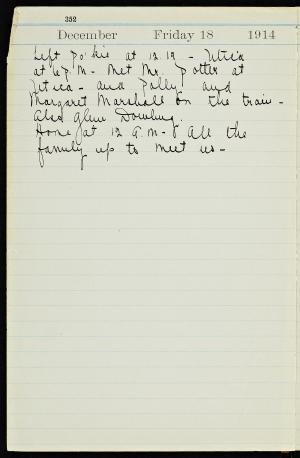 352
December Friday 18 1914
Left Po'kie at 12.19 - Utica
at 6 P.M - Met Mr. Potter at
Utica - and Polly and
Margaret Marshall on the train -
Also Glenn Dowling.
Home at 12 A.M - All the
family up to meet us -